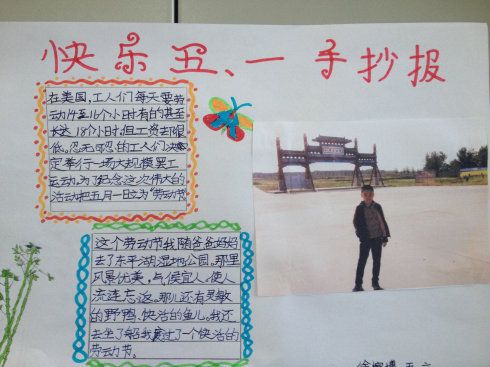 快乐五、一手抄报
在美国,工人们每天要劳
动14至16个小时有的甚至
长达18个小时,但工资却很
低。忍无可忍的工人们决
定举行一场大规模罢工
运动。为了纪念这次伟大的
活动把五月一日立为"劳动节
这个劳动节我随爸爸妈妈
去了东平湖湿地公园。那里
风景优美,气侯宜人,使人
流连忘返。那儿还有灵敏
的野鸭、快活的鱼儿。我还
去坐了船我度过了一个快活的
劳动节。
徐